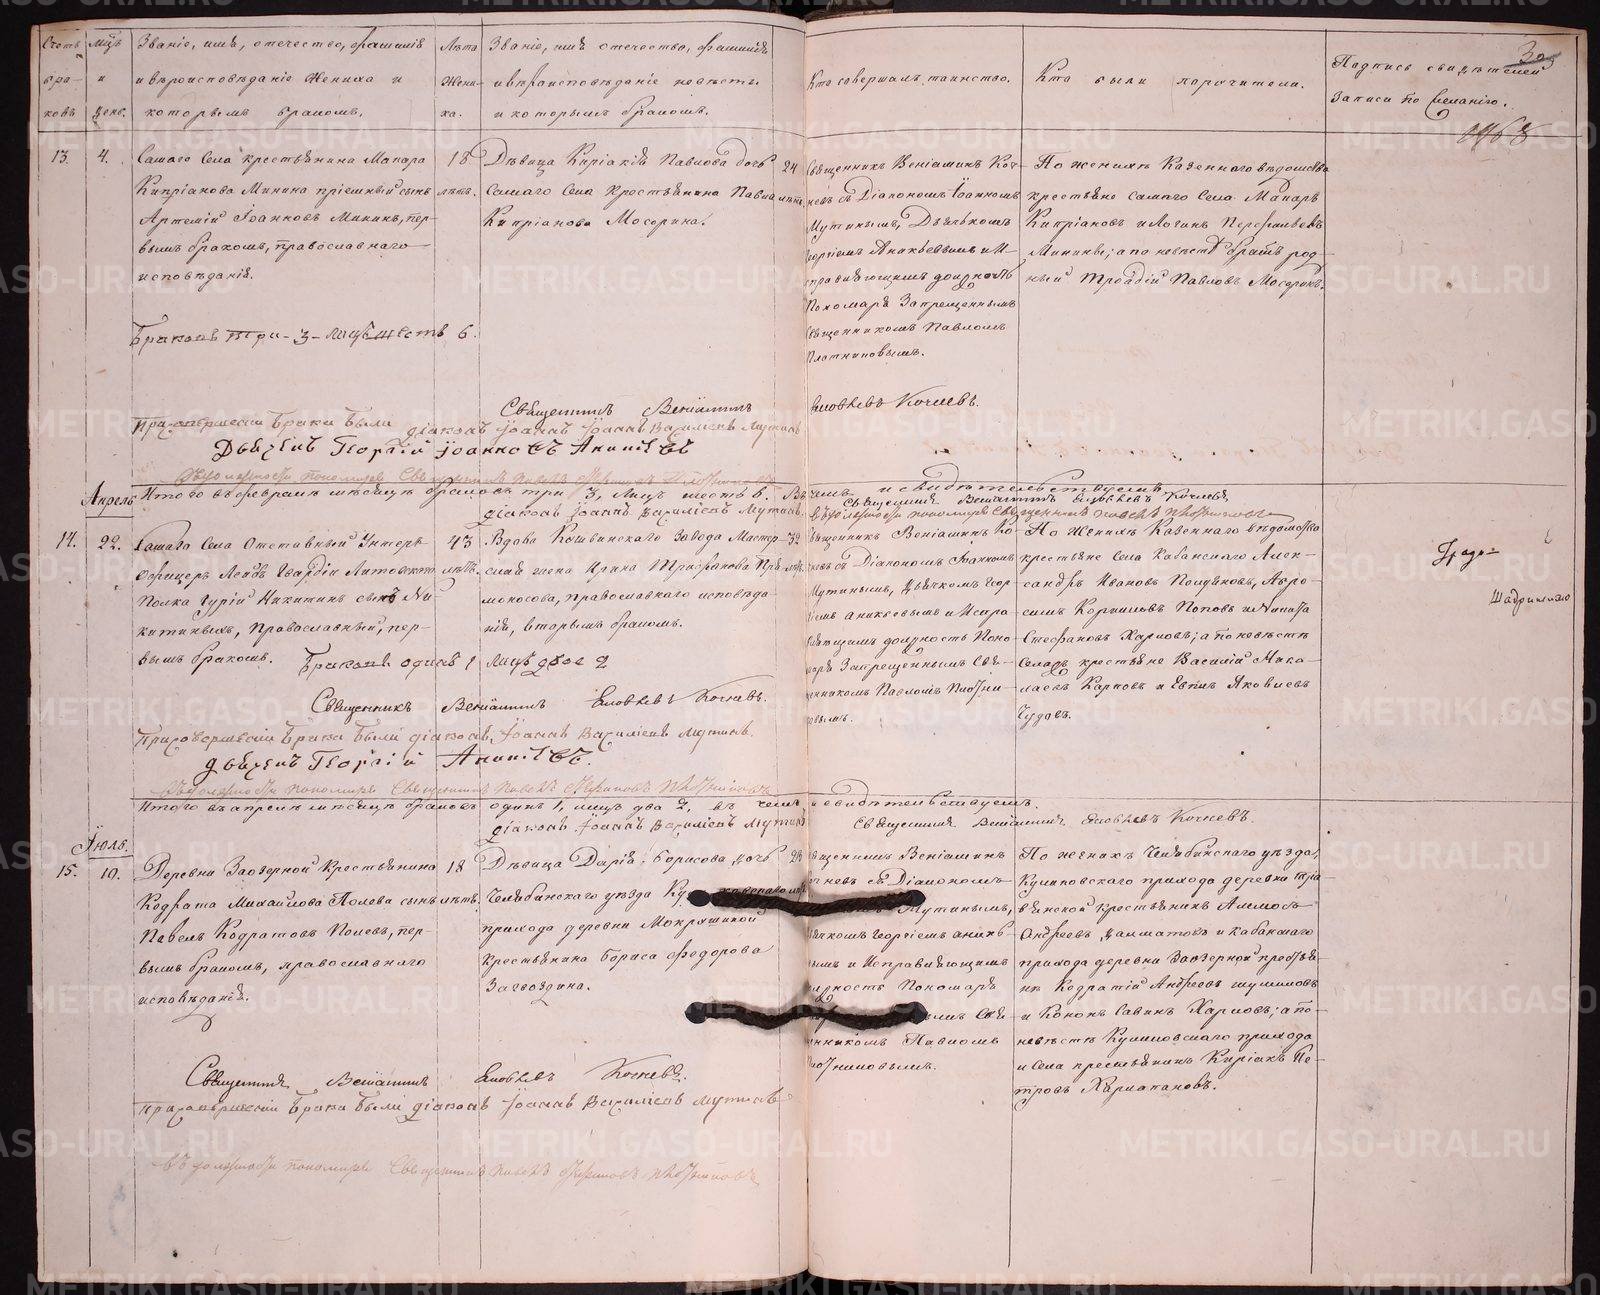 Счетъ бра- ковъ
Мцъ и день.
Званіе, имя, отечество, фамилія
и вѣроисповѣданіе жениха и
которымъ бракомъ.
Лѣта жени- ха.
Званіе, имя отечество, фамилія
и вѣроисповѣданіе невѣсты.
и которымъ бракомъ.
Кто совершалъ таинство.
Кто были поручители.
Подпись свидѣтелей
записи по желанію.
13.
4.
Самаго Села крестьянина Макара
Кипріанова Минина пріемный сынъ
Артемій Іоанновъ Мининъ, пер-
вымъ бракомъ, православнаго
исповѣданія.
18
лѣтъ.
Дѣвица Киріакія Павлова дочь
Самаго Села крестьянина Павла
Кипріанова Мосорина.
24
лѣтъ.
Священникъ Веніаминъ Коч-
невъ съ Діакономъ Іоанномъ
Мутинымъ, Дьячкомъ
Георгіемъ Ананьевымъ и И-
справляющимъ должность
Пономаря Запрещеннымъ
Священникомъ Павломъ
Плотниковымъ.
По женихѣ Казеннаго вѣдомства
крестьяне самаго Села Макаръ
Кипріановъ и Логинъ Перфильевъ
Минины; а по невѣстѣ братъ род-
ный Троадій Павловъ Мосоринъ.
Браковъ три - 3 - лицъ шесть 6.
Священникъ Веніаминъ
Яковлевъ Кочневъ.
При совершеніи брака были діаконъ Іоаннъ Василіевъ Мутинъ
Дьячекъ Георгій Іоанновъ Ананьевъ
Итого въ февралѣ мѣсяцѣ браковъ три 3, лицъ шесть 6. Въ
чемъ и свидѣтельствуемъ
Священникъ Веніаминъ Яковлевъ Кочневъ
діаконъ Іоаннъ Василіевъ Мутинъ.
Апрель
14.
22.
Самаго Села Отставный Унтеръ
Офицеръ Лейбъ Гвардіи Литовскаго
Полка Гурій Никитинъ сынъ Ни-
китиныхъ, Православный, пер-
вымъ бракомъ.
43
лѣтъ.
Вдова Кошвинскаго Завода Мастер-
ская жена Ирина Трафанова При-
моносова, православнаго исповѣда-
нія, вторымъ бракомъ.
32
Священникъ Веніаминъ Ко-
чневъ съ Діакономъ Іоанномъ
Мутинымъ, Дьячкомъ Геор-
гіемъ Ананьевымъ и Испра-
вляющимъ должность Поно-
маря Запрещеннымъ Свя-
щенникомъ Павломъ Плотни-
ковымъ.
По Женихѣ Казеннаго вѣдомства
крестьяне Села Кабанскаго Алек-
сандръ Ивановъ Полуяновъ, Авро-
симъ Корниловъ Поповъ и Никита
Стефановъ Харловъ; а по невѣстѣ
Села крестьяне Василій Мака-
лаевъ Карповъ и Евтихъ Яковлевъ
Чудовъ.
Браковъ одинъ 1 лицъ двое 2
Священникъ Веніаминъ Яковлевъ Кочневъ.
При совершеніи брака были діаконъ, Іоаннъ Василіевъ Мутинъ.
дьячекъ Георгій Ананьевъ.
Итого въ апрелѣ мѣсяцѣ браковъ одинъ 1, лицъ два 2, въ чемъ
и свидѣтельствуемъ.
діаконъ Іоаннъ Василіевъ Мутинъ
Священникъ Веніаминъ Яковлевъ Кочневъ.
Іюль.
15.
10.
Деревни Заозерной Крестьянина
Кодрата Михайлова Полева сынъ
Павелъ Кодратовъ Полевъ, пер-
вымъ бракомъ, православнаго
исповѣданія.
18
лѣтъ.
Дѣвица Дарія Борисова дочь
Челябинскаго уѣзда
прихода деревни Мокрушиной
крестьянина Бориса Федорова
Загвоздина.
Священникъ Веніаминъ
Кочневъ съ Діакономъ
Мутинымъ,
Дьячкомъ Георгіемъ Анань-
евымъ и Исправляющимъ
должность Пономаря
Свя-
щенникомъ Павломъ
Плотниковымъ.
По женихѣ Челябинскаго уѣзда,
Куликовскаго прихода деревни
крестьянинъ
Андреевъ Далматовъ и Кабанскаго
прихода деревни Заозерной крестья-
не Кодратій Андреевъ Шумиловъ
и Кононъ Савинъ Харловъ; а по
невѣстѣ Куликовскаго прихода
и Села крестьянинъ Киріакъ Пе-
тровъ Харлапановъ.
Священникъ Веніаминъ Яковлевъ Кочневъ.
При совершеніи брака были діаконъ Іоаннъ Василіевъ Мутинъ
METRIKI.GASO-URAL.RU